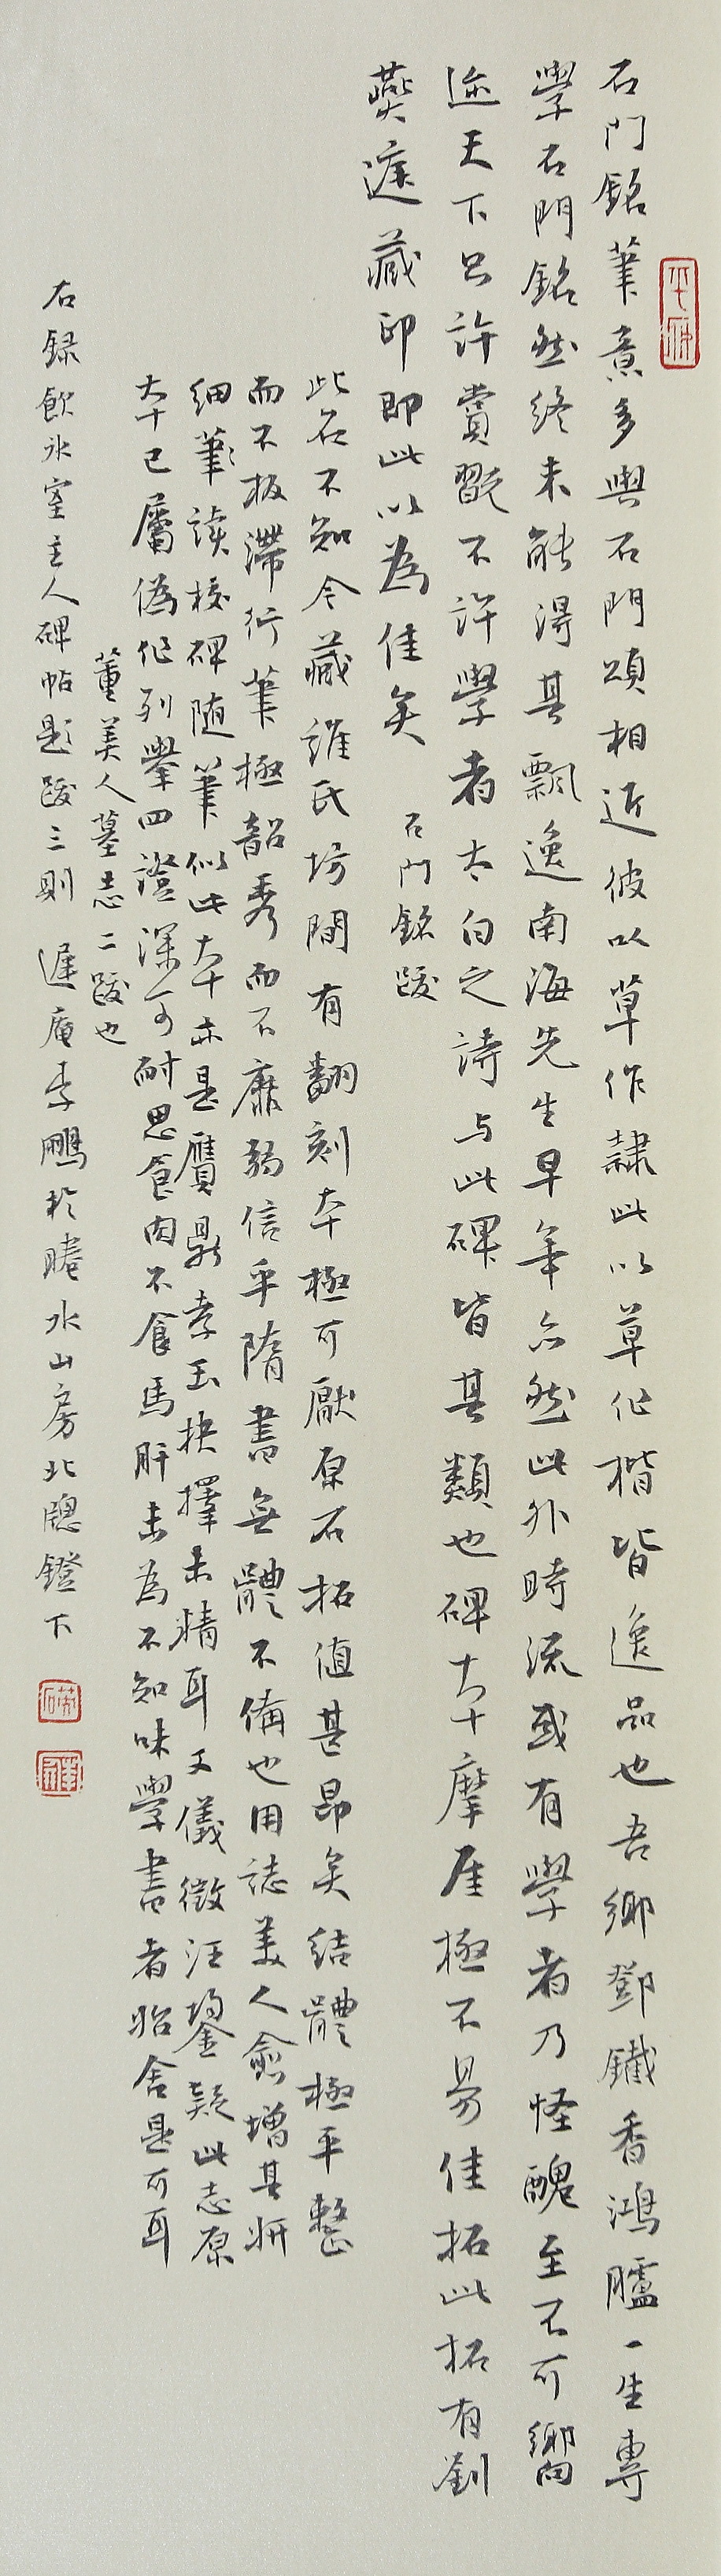 石門銘筆意多與石門頌相近彼以草作隸此以草作楷皆逸品也吾鄉鄧鐵香鴻臚一生專
學石門銘然終未能得其飄逸南海先生早年亦然此外時流或有學者乃怪醜至不可嚮
迩天下只許賞翫不許學者太白之詩与此碑皆其類也碑本摩厓極不易佳拓此拓有劉
燕庭藏印即此以為佳矣
石門銘跋
此石不知今藏誰氏坊間有翻刻本極可厭原石拓值甚昂矣結體極平整
而不板滯行筆極韶秀而不靡弱信乎隋書無體不備也用誌美人俞增其妍
細勘读校碑随筆似此本亦是贗鼎李玉抉擇未精耳又儀徵汪鋆疑此志原
本已屬偽作列舉四證深可耐思食肉不食馬肝未為不知味學書者貽舍是可耳
董美人墓志二跋也
右録飲冰室主人碑帖題跋三則 遲庵李鵬於睠水山房北牕鐙下